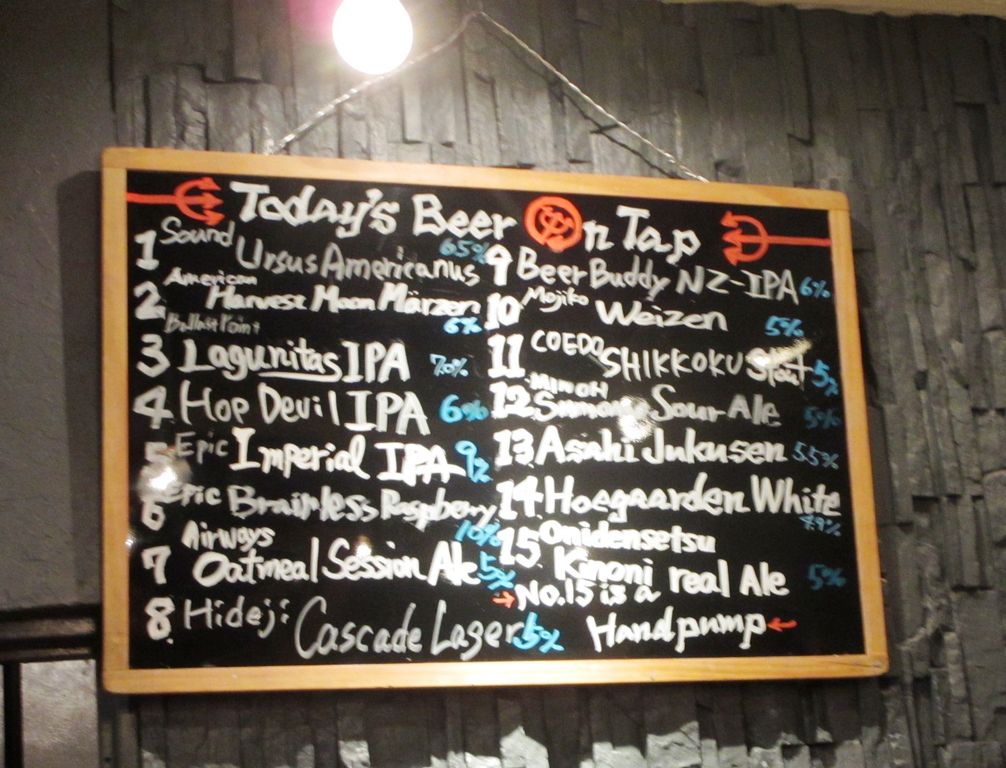 Today's Beer On Tap
1 Sound Ursus Americanus 65%
2 American Harvest Moon Märzen 6%
Ballast Point
3 Lagunitas IPA 7.0%
4 Hop Devil IPA 6%
5 Epic Imperial IPA 9%
6 Epic Brainless Raspberry 10%
7 Airways Oatmeal Session Ale 5%
8 Hideji: Cascade Lager 5%
9 Beer Buddy NZ-IPA 6%
10 Mojiko Weizen 5%
11 COEDO SHIKKOKU Stout 5%
12 MINOH Sour Ale 5%
13 Asahi Jukusen 5.5%
14 Hoegaarden White
15 Onidensetsu Kinoni real Ale 5%
→No.15 is a
Hand pump←